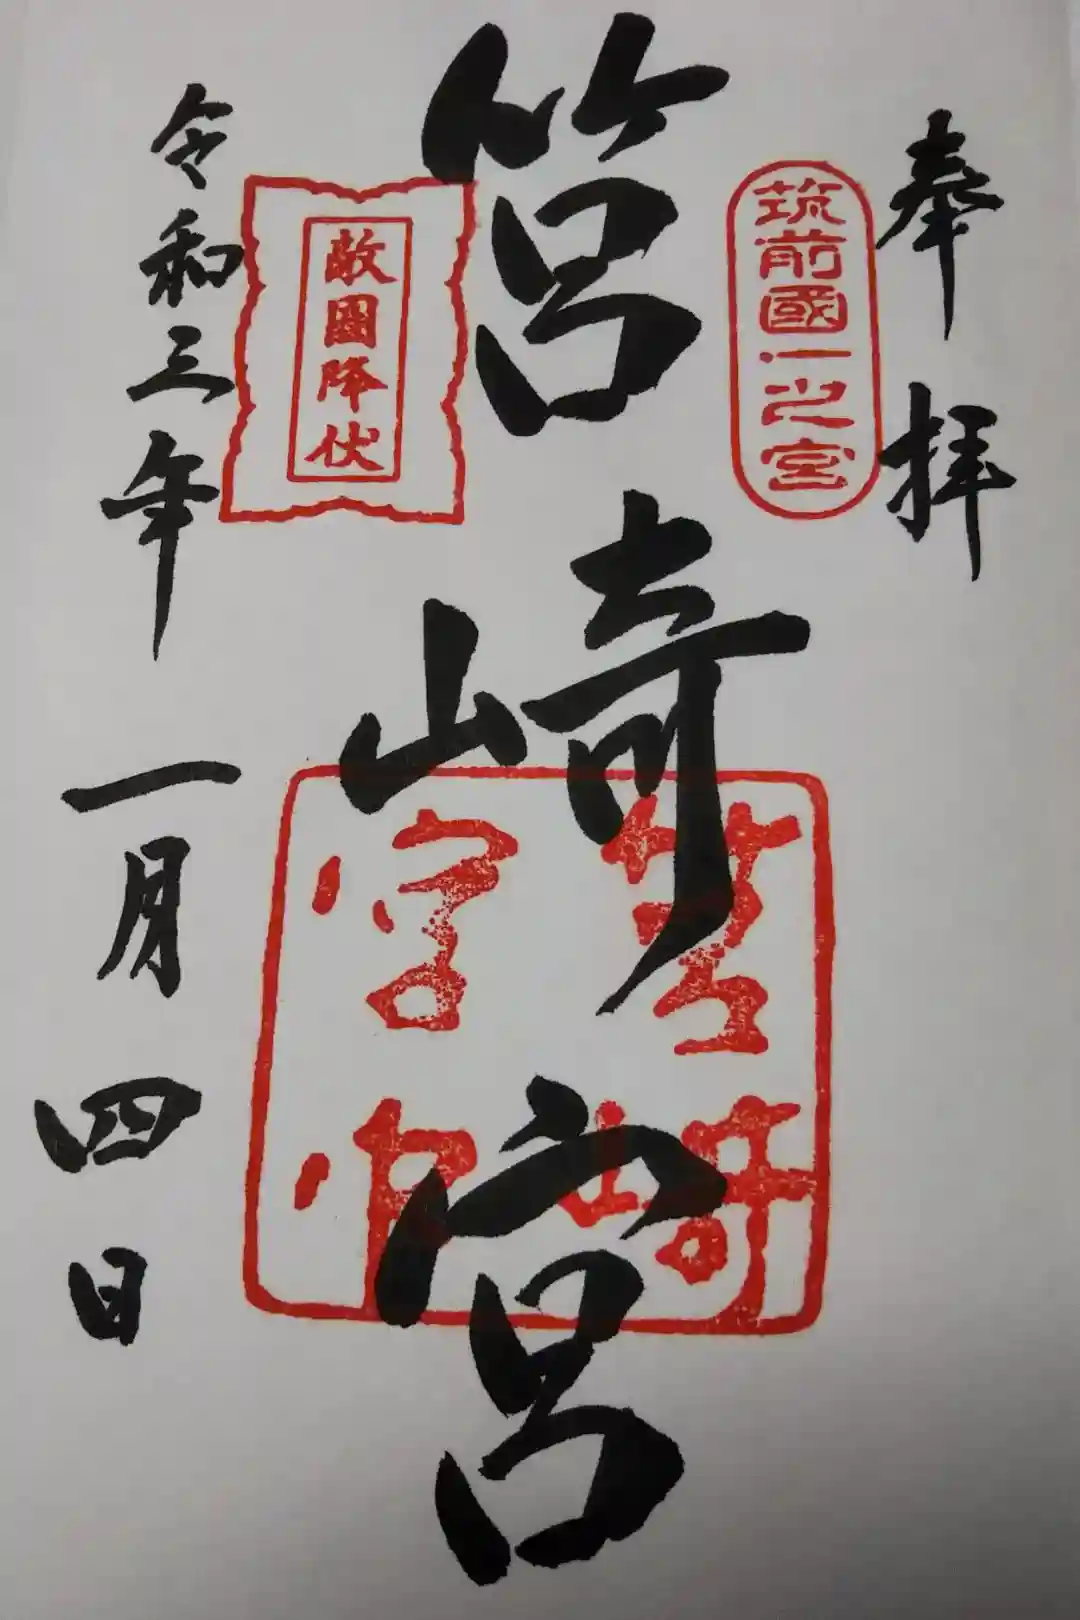 奉拝
筑前國一之宮
筥崎宮
敵國降伏
筥崎宮印
令和三年一月四日